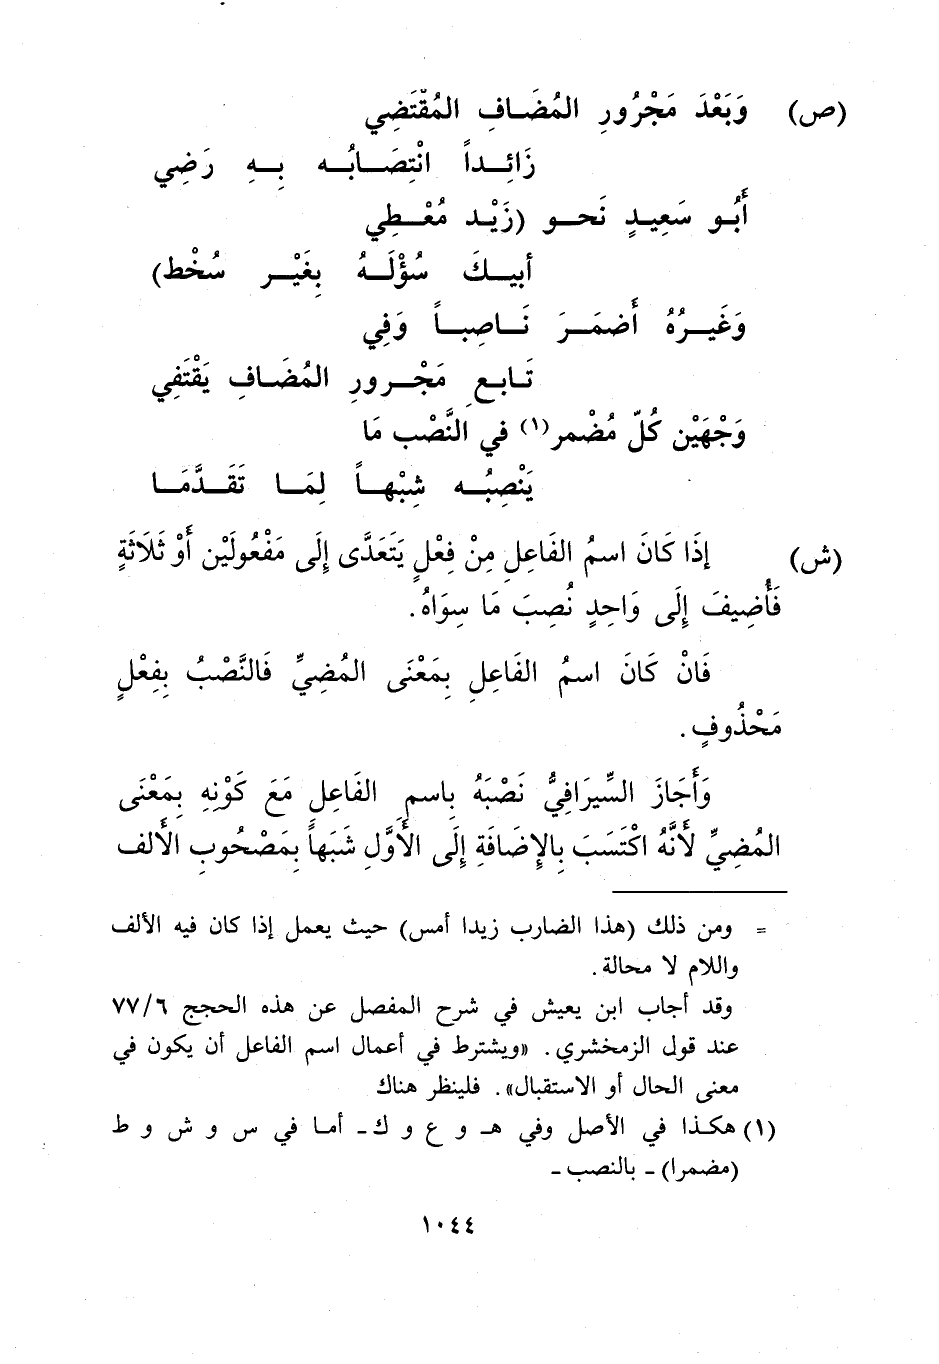 (ص) وَبَعْدَ مَجْرُورِ المُضَافِ المُقْتَضِي
زَائِداً انْتِصَابُه بِهِ رَضِي
أَبُو سَعِيدٍ نَحو (زَيْد مُعْطِي
أبيكَ سُؤْلَهُ بِغَيْرِ سُخْط)
وَغَيرُهُ أَضمَرَ نَاصِباً وَفِي
تَابعِ مَجْرورِ المُضَافِ يَقْتَفِي
وَجْهَيْن كُلّ مُضْمر(١) فِي النَّصْب مَا
يَنْصِبُه شِبْهاً لِمَا تَقَدَّمَا
(ش) إذَا كَانَ اسمُ الفَاعِلِ مِنْ فِعْلٍ يَتَعَدَّى إِلَى مَفْعُولَيْن أَوْ ثَلَاثَةٍ
فَأُضِيفَ إِلَى وَاحِدٍ نُصِبَ مَا سِوَاهُ.
فَانْ كَانَ اسمُ الفَاعِلِ بِمَعْنَى المُضِيِّ فَالنَّصْبُ بِفِعْلٍ
مَحْذُوفٍ.
وَأَجَازَ السِّيرَافِيُّ نَصْبَهُ بِاسمِ الفَاعِلِ مَعَ كَوْنِهِ بِمَعْنَى
المُضِيِّ لأَنَّهُ اكْتَسَبَ بِالإِضَافَةِ إِلَى الأَوَّلِ شَبَهاً بِمَصْحُوبِ الأَلف
= ومن ذلك (هذا الضارب زيدا أمس) حيث يعمل إذا كان فيه الألف
واللام لا محالة.
وقد أجاب ابن يعيش في شرح المفصل عن هذه الحجج ٧٧/٦
عند قول الزمخشري. «ويشترط في أعمال اسم الفاعل أن يكون في
معنى الحال أو الاستقبال». فلينظر هناك
(١) هكذا في الأصل وفي هـ و ع و ك ـ أما في س و ش و ط
(مضمرا) ـ بالنصب ـ
١٠٤٤